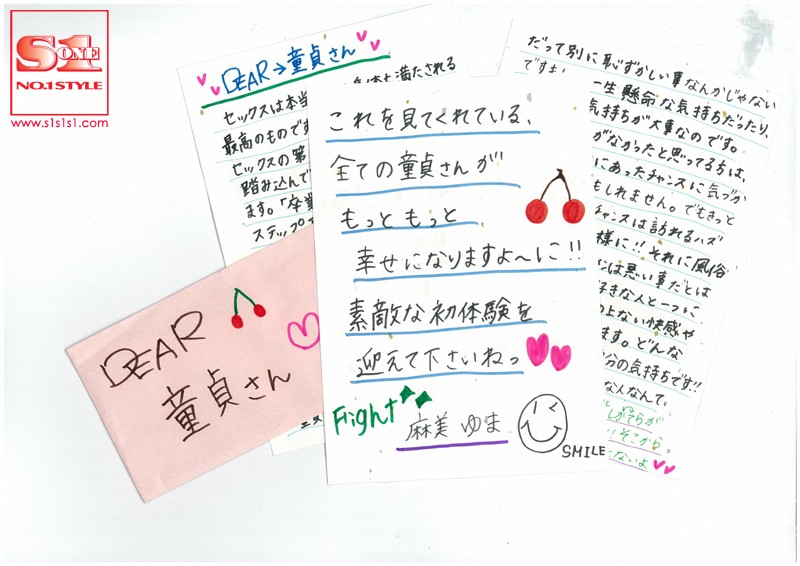 S1
ONE
NO.1 STYLE
www.s1s1s1.com
DEAR→童貞さん
セックスは本当
満たされる
最高のものです
セックスの第
踏み込んで
ます。「卒業
ステップ
DEAR
童貞さん
これを見てくれている、
全ての童貞さんが
もっともっと
幸せになりますよ〜に!!
素敵な初体験を
迎えて下さいねっ
Fight
麻美ゆま
SMILE
だって別に恥ずかしい事なんかじゃない
一生懸命な気持ちだったり、
気持ちが大事なのです。
がなかったと思ってる方は、
にあったチャンスに気づか
もしれません。でもきっと
チャンスは訪れるハズ
様に!!それに風俗
は悪い事だとは
好きな人と一つに
ない快感や
ます。どんな
分の気持ちです!!
な人なんて、
しがてらが
そこから
ないよ